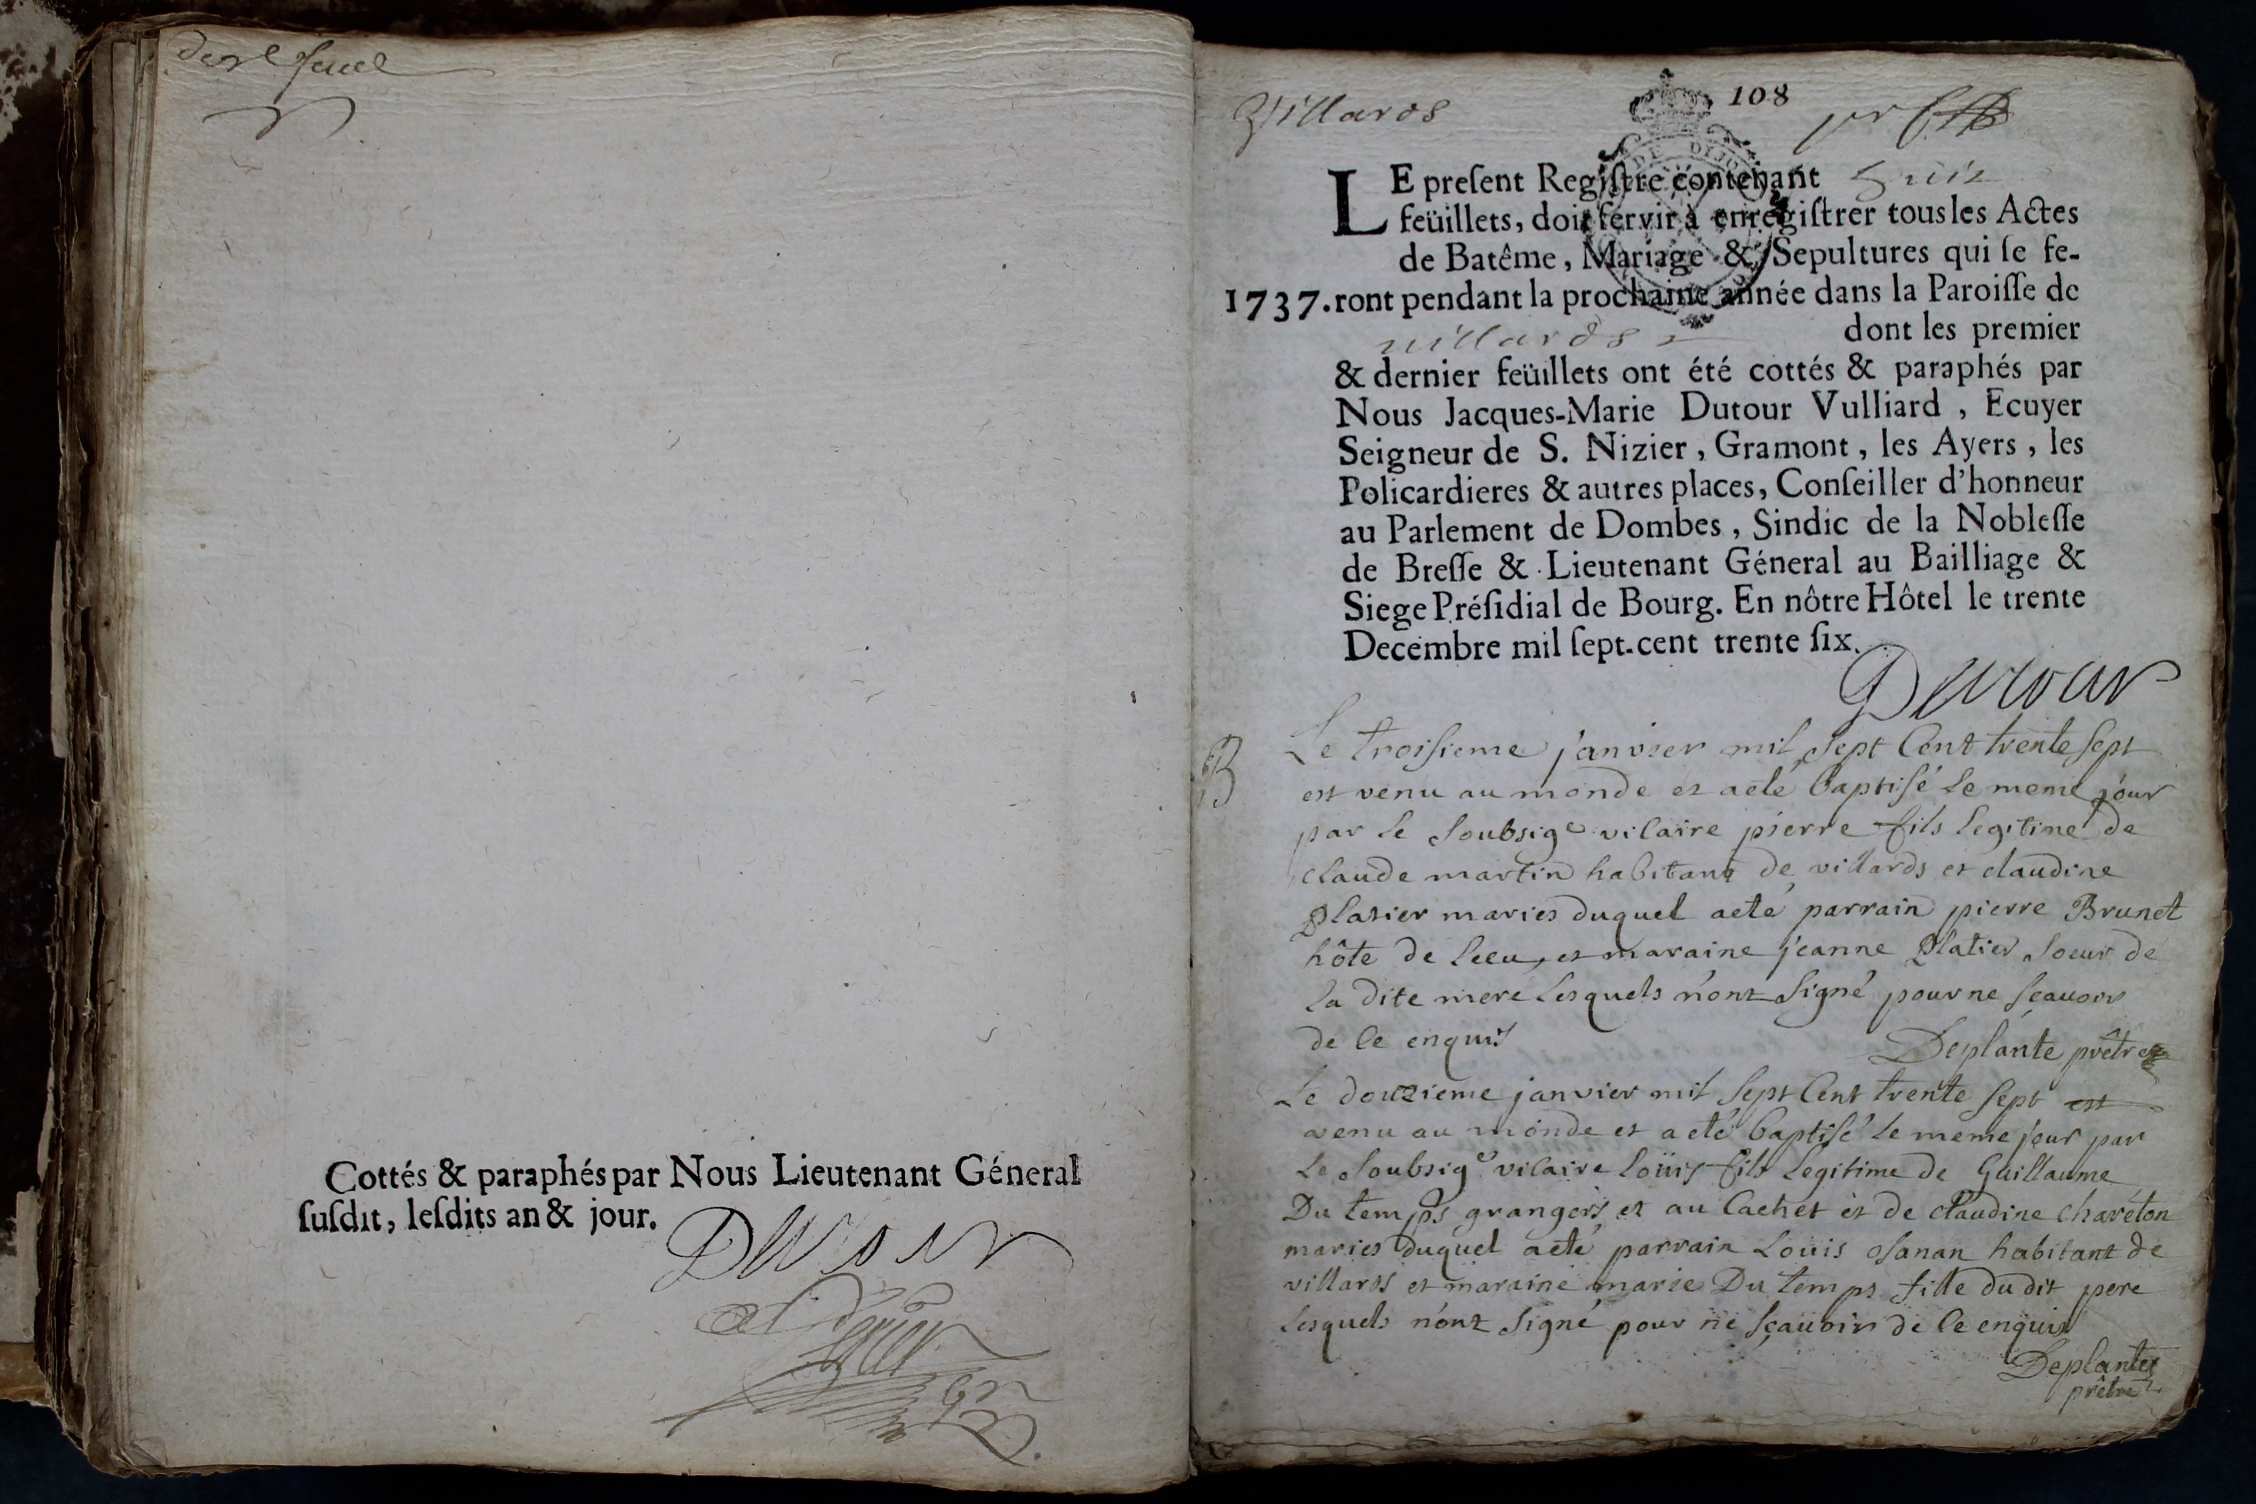 Cottés & paraphés par Nous Lieutenant Géneral
ſuſdit, leſdits an & jour.
Dutour
Villards
108
LE preſent Regiſtre contenant huit
feüillets, doit ſervir à enregiſtrer tous les Actes
de Batême, Mariage & Sepultures qui ſe fe-
1737. ront pendant la prochaine année dans la Paroiſſe de
villards dont les premier
& dernier feüillets ont été cottés & paraphés par
Nous Jacques-Marie Dutour Vulliard, Ecuyer
Seigneur de S. Nizier, Gramont, les Ayers, les
Policardieres & autres places, Conſeiller d'honneur
au Parlement de Dombes, Sindic de la Nobleſſe
de Breſſe & Lieutenant Géneral au Bailliage &
Siege Préſidial de Bourg. En nôtre Hôtel le trente
Decembre mil ſept-cent trente ſix.
Dutour
B
Le troisieme janvier mil sept Cent trente sept
est venu au monde et aeté baptisé le meme jour
par le soubsige vicaire pierre fils legitime de
claude martin habitant de villards et claudine
Platier maries duquel aeté parrain pierre Brunet
hôte de lieu, et maraine jeanne Platier soeur de
la dite mere lesquels n'ont signé pour ne sçauoir
de ce enquis
Deplante prêtre
Le douzieme janvier mil sept Cent trente sept est
venu au monde et aeté baptisé le meme jour par
le soubsige vicaire loüis fils legitime de Guillaume
Du temps grangers et au Cachet et de claudine charéton
maries duquel aeté parrain Loüis osanan habitant de
villards et maraine marie Du temps fille du dit pere
lesquels n'ont signé pour ne sçauoir de ce enquis
Deplante
prêtre